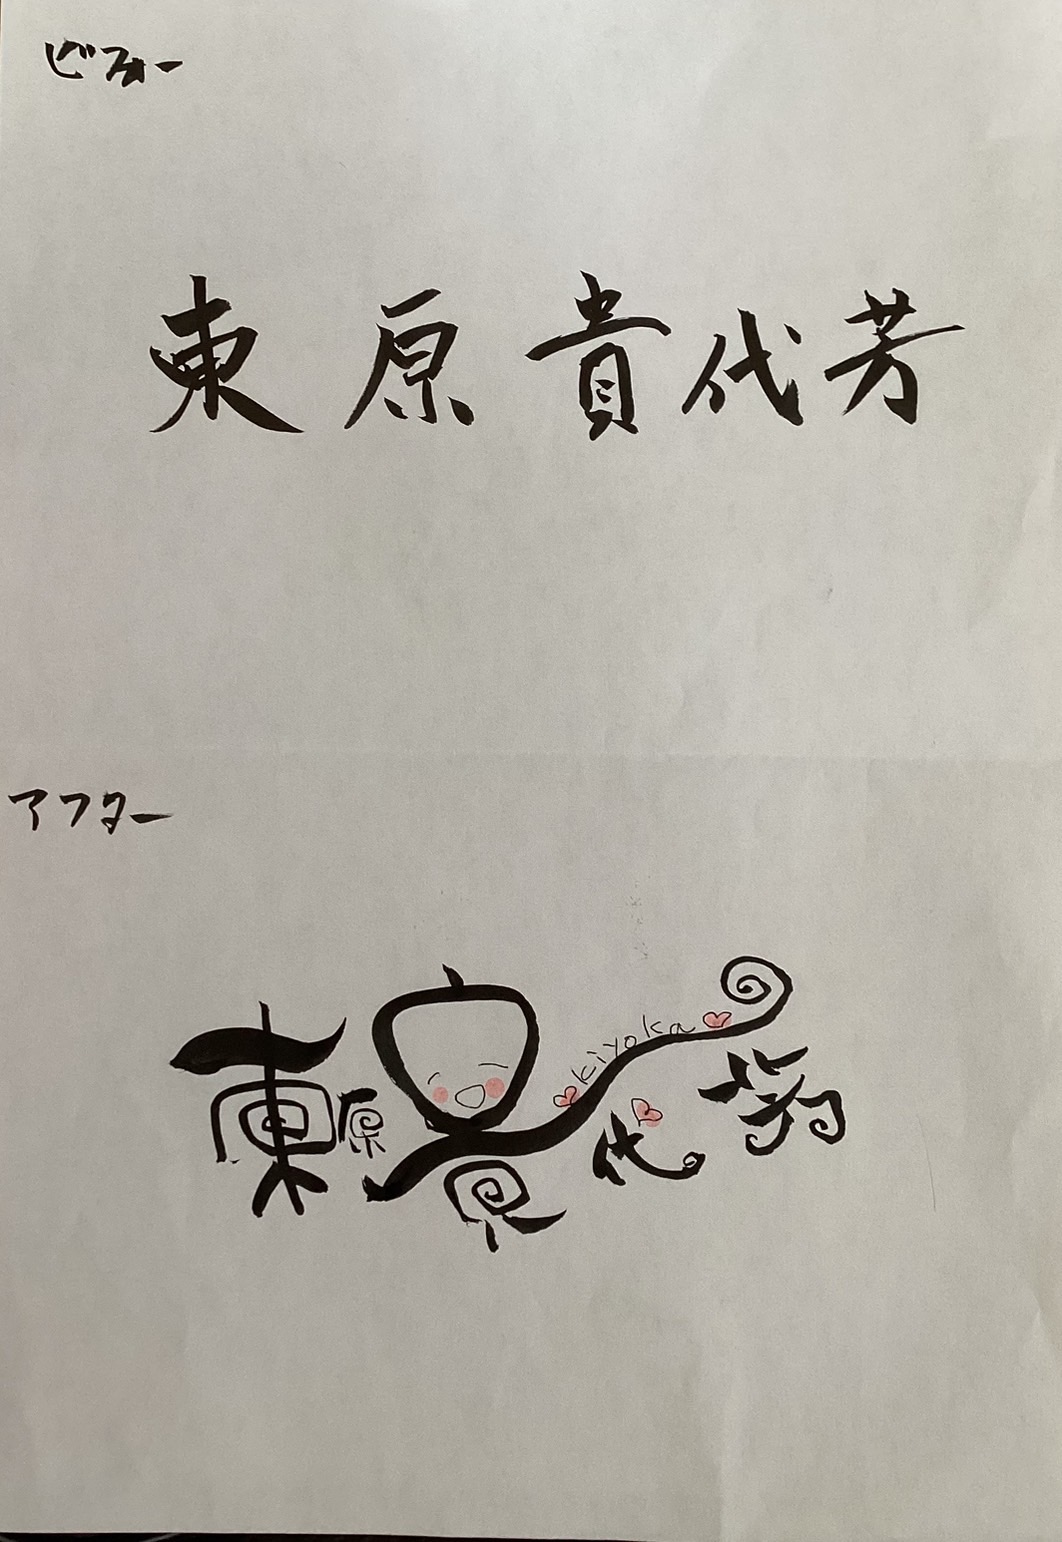 ビフォー
東原 貴代芳
アフター
kiyoka
東原貴代芳